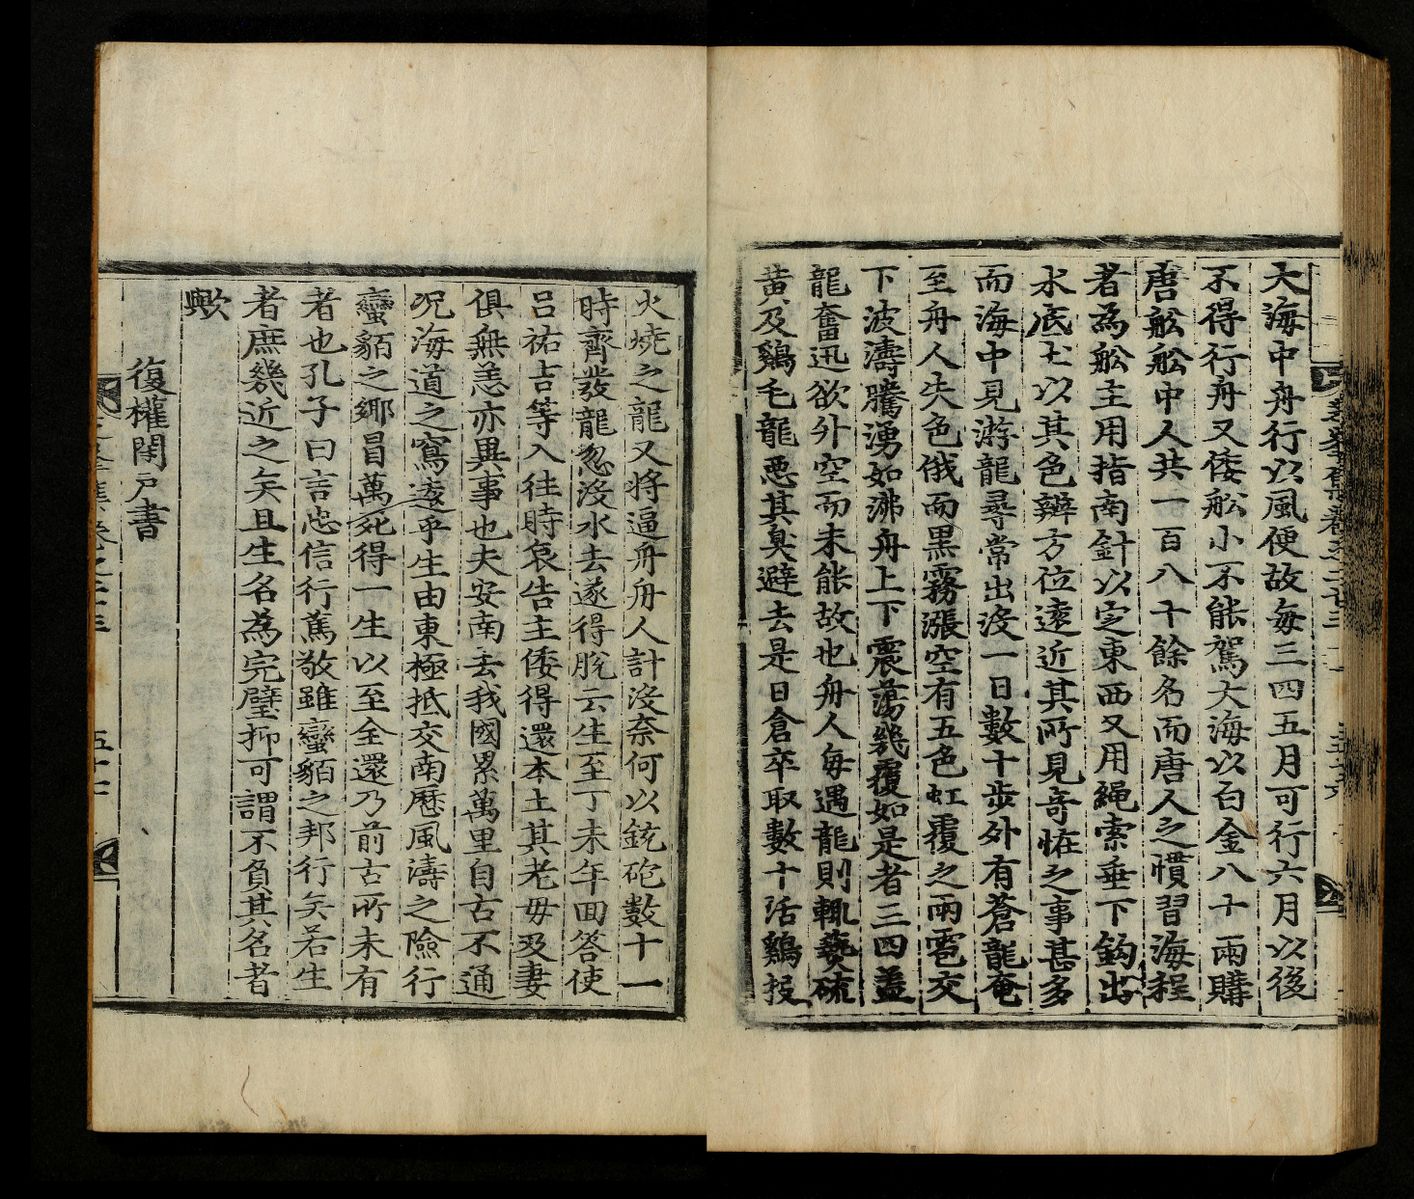 大海中舟行以風便故每三四五月可行六月以後
不得行舟又倭舩小不能駕大海以白金八十兩購
唐舩舩中人共一百八十餘名而唐人之慣習海程
者爲舩主用指南針以定東西又用繩索垂下鉤出
水底土以其色辨方位遠近其所見奇恠之事甚多
而海中見游龍尋常出沒一日數十步外有蒼龍奄
至舟人失色俄而黑霧漲空有五色虹覆之雨雹交
下波濤騰湧如沸舟上下震蕩幾覆如是者三四盖
龍奮迅欲外空而未能故也舟人每遇龍則輒爇硫
黃及鷄毛龍惡其臭避去是日倉卒取數十活鷄投
火燒之龍又將逼舟舟人計沒奈何以銃砲數十一
時齊發龍忽沒水去遂得脫云生至丁未年回答使
呂祐吉等入徃時哀告主倭得還本土其老毋及妻
俱無恙亦異事也夫安南去我國累萬里自古不通
况海道之窵遠乎生由東極抵交南歷風濤之險行
蠻貊之鄕冒萬死得一生以至全還乃前古所未有
者也孔子曰言忠信行篤敬雖蠻貊之邦行矣若生
者庶幾近之矣且生名爲完璧抑可謂不負其名者
歟
復權閑戶書